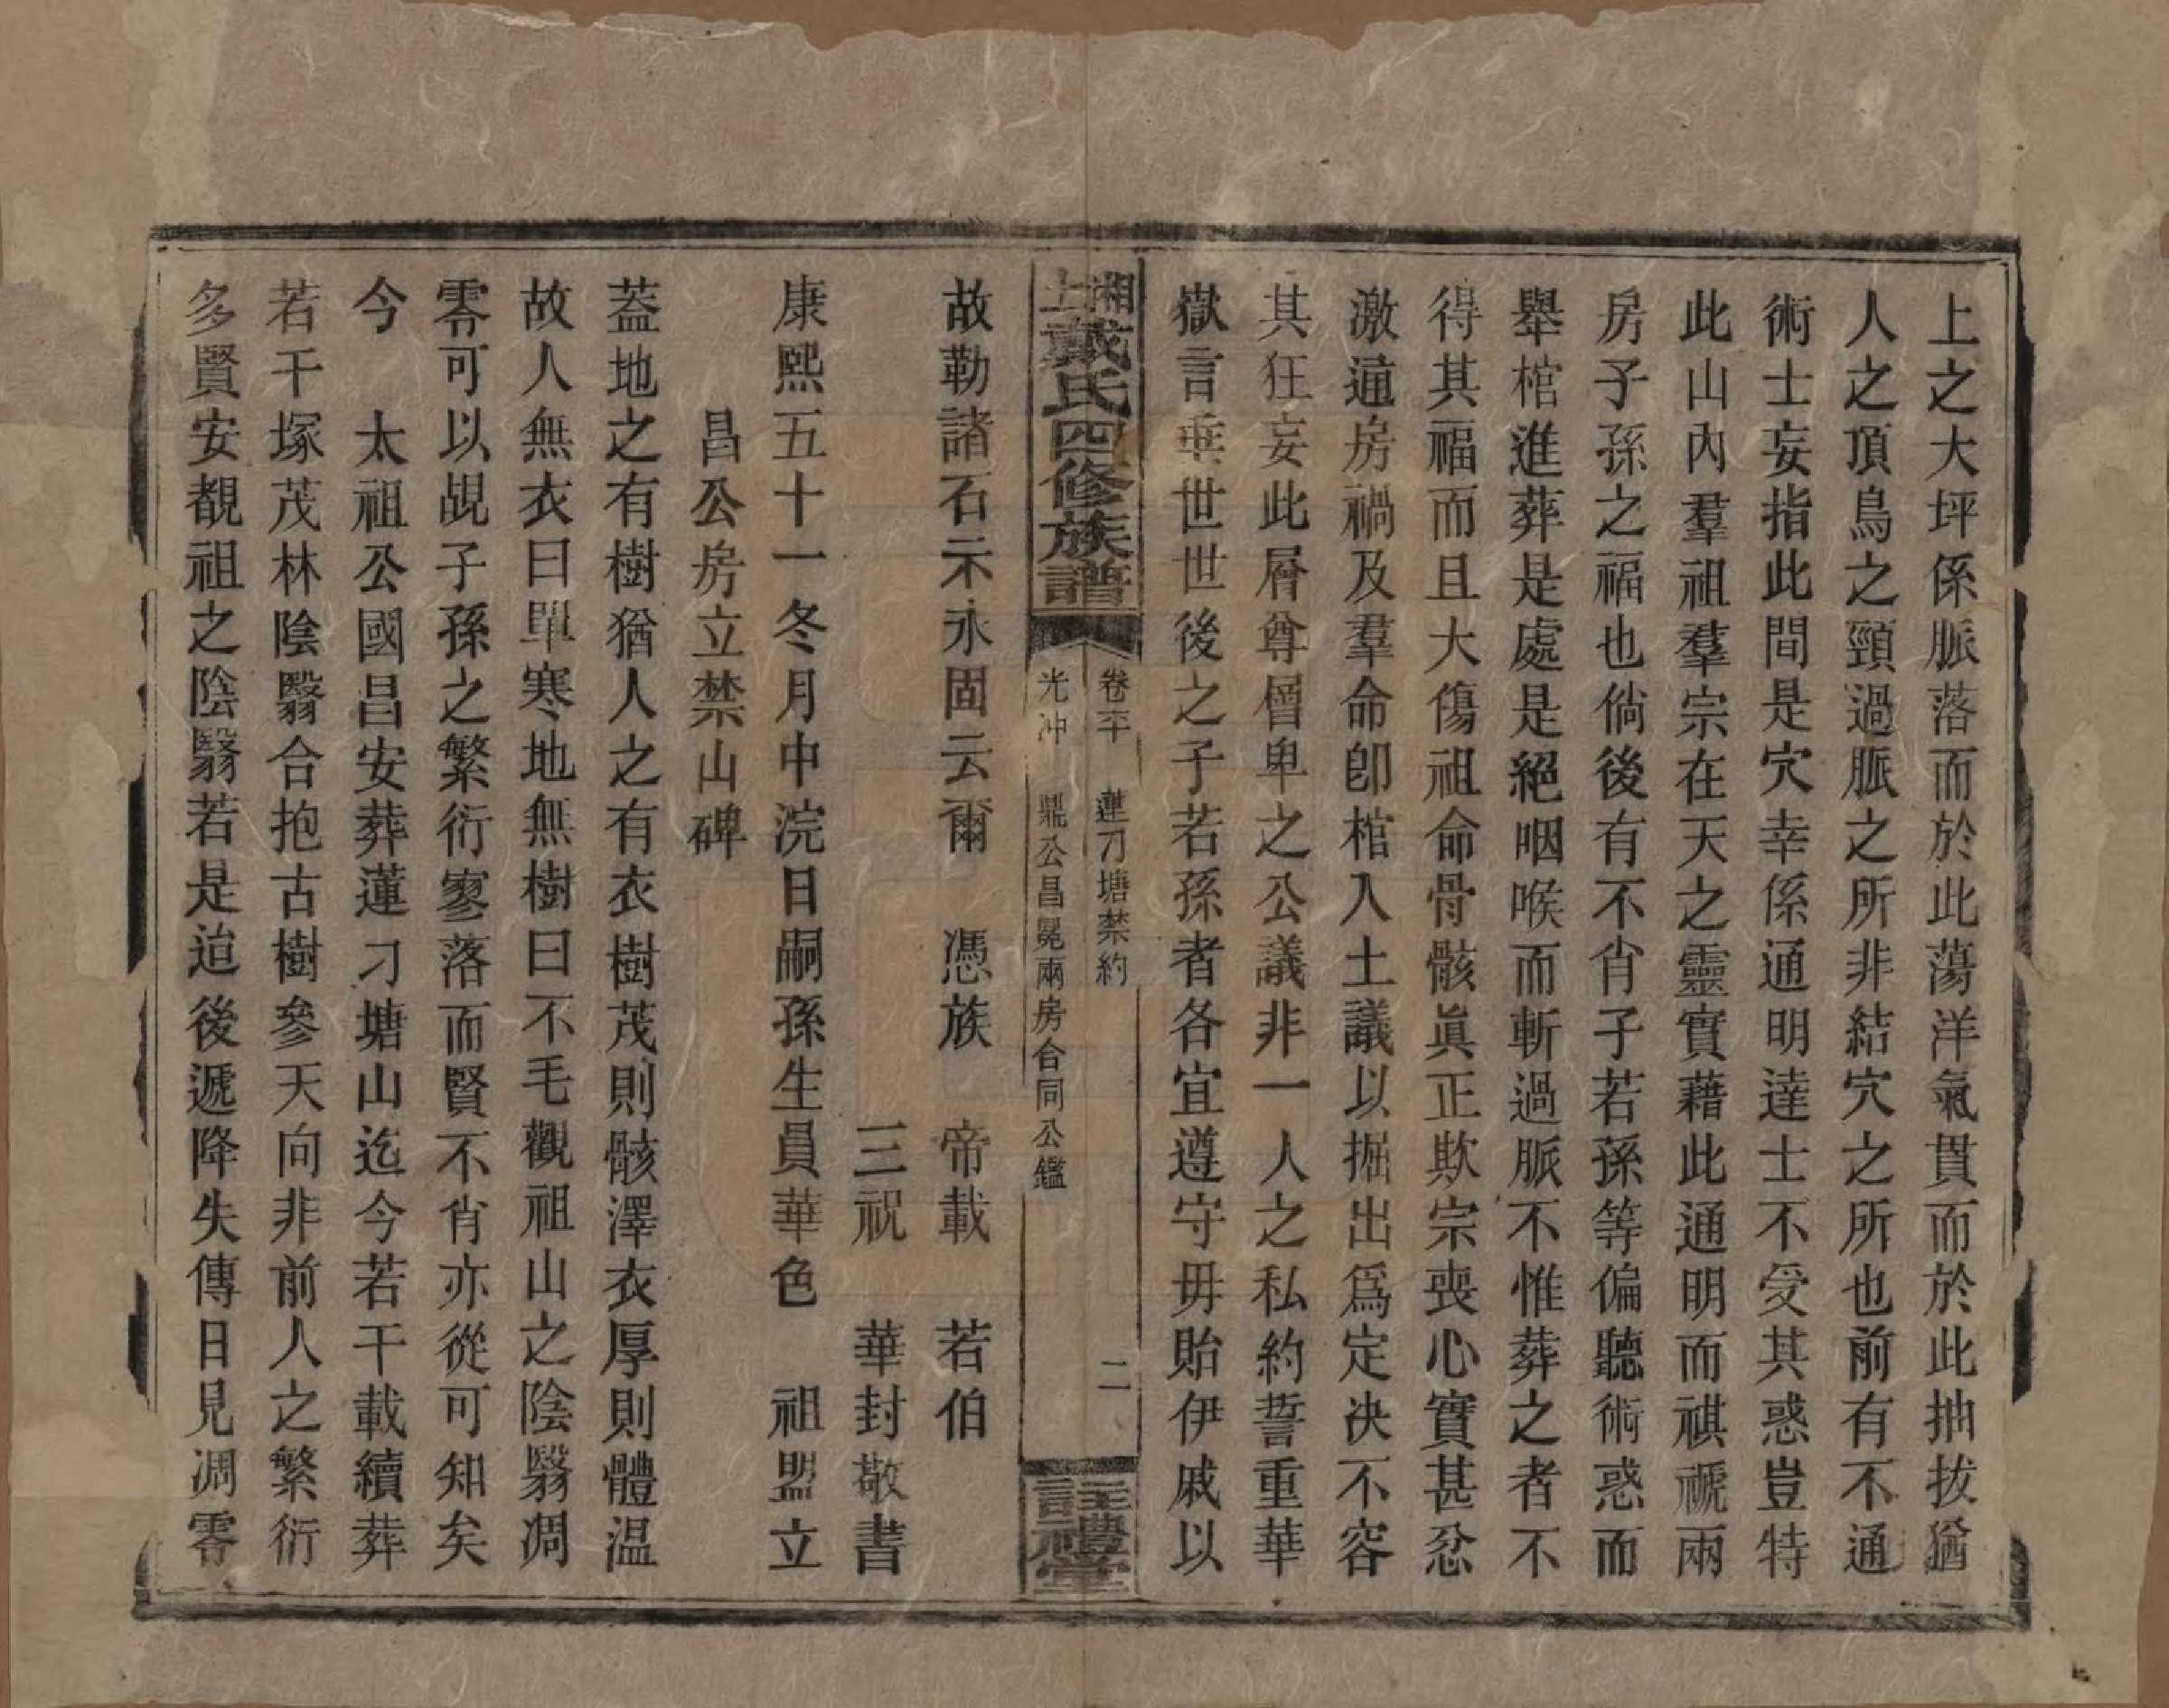 上之大坪係脈落而於此蕩洋氣貫而於此抽拔猶
人之頂鳥之頸過脈之所非結穴之所也前有不通
術士妄指此間是穴幸係通明達士不受其惑豈特
此山內羣祖羣宗在天之靈實藉此通明而祺禠兩
房子孫之福也倘後有不肖子若孫等偏聽術惑而
舉棺進葬是處是絕咽喉而斬過脈不惟葬之者不
得其福而且大傷祖命骨骸眞正欺宗喪心實甚忿
激通房禍及羣命卽棺入土議以掘出爲定决不容
其狂妄此層尊層卑之公議非一人之私約誓重華
嶽言垂世世後之子若孫者各宜遵守毋貽伊戚以
湘上戴氏四修族譜
卷二十 蓮刀塘禁約
光冲 鼎公昌冕兩房合同公鑑
二
註禮堂
故勒諸石示永固云爾 憑族 帝載 若伯
三祝 華封敬書
康熙五十一冬月中浣日嗣孫生員華色 祖盟立
昌公房立禁山碑
葢地之有樹猶人之有衣樹茂則骸澤衣厚則體温
故人無衣曰單寒地無樹曰不毛觀祖山之陰翳凋
零可以覘子孫之繁衍寥落而賢不肖亦從可知矣
今 太祖公國昌安葬蓮刁塘山迄今若干載續葬
若干塚茂林陰翳合抱古樹參天向非前人之繁衍
多賢安覩祖之陰翳若是迨後遞降失傳日見凋零